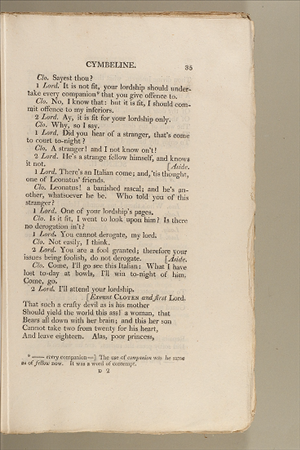 CYMBELINE. 35
Clo. Sayest thou?
1 Lord. It is not fit, your lordship should under-
take every companion* that you give offence to.
Clo. No, I know that: but it is fit, I should com-
mit offence to my inferiors.
2 Lord. Ay, it is fit for your lordship only.
Clo. Why, so I say.
1 Lord. Did you hear of a stranger, that's come
to court to-night?
Clo. A stranger! and I not know on't!
2 Lord. He's a strange fellow himself, and knows
it not. [Aside.
1 Lord. There's an Italian come; and, 'tis thought,
one of Leonatus' friends.
Clo. Leonatus! a banished rascal; and he's an-
other, whatsoever he be. Who told you of this
stranger?
1 Lord. One of your lordship's pages.
Clo. Is it fit, I went to look upon him? Is there
no derogation in't?
1 Lord. You cannot derogate, my lord.
Clo. Not easily, I think.
2 Lord. You are a fool granted; therefore your
issues being foolish, do not derogate. [Aside.
Clo. Come, I'll go see this Italian: What I have
lost to-day at bowls, I'll win to-night of him.
Come, go.
2 Lord. I'll attend your lordship.
[Exeunt CLOTEN and first Lord.
That such a crafty devil as is his mother
Should yield the world this ass! a woman, that
Bears all down with her brain; and this her son
Cannot take two from twenty for his heart,
And leave eighteen. Alas, poor princess,
* —— every companion—] The use of companion was the same
as of fellow now. It was a word of contempt.
D 2